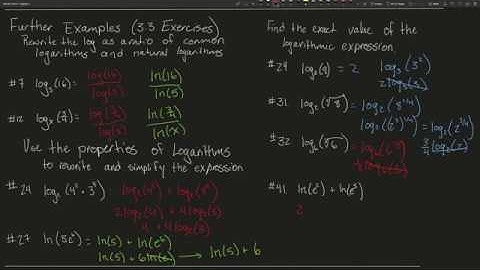 Further Examples (3.3 Exercises)
Rewrite the log as a ratio of common
logarithms and natural logarithms
#7 log₅(16) = log(16)/log(5) ln(16)/ln(5)
#12 logₓ(3/4) = log(3/4)/log(x) ln(3/4)/ln(x)
Use the properties of Logarithms
to rewrite and simplify the expression
#24 log₂(4² · 3⁴) log₂(4²) + log₂(3⁴)
2log₂(4) + 4log₂(3)
4 + 4log₂(3)
#27 ln(5e⁶) = ln(5) + ln(e⁶)
ln(5) + 6ln(e) → ln(5) + 6
Find the exact value of the
logarithmic expression
#29 log₃(9) = 2 log₃(3²)
2log₃(3)
#31 log₂(⁴√8) = log₂(8^(1/4))
log₂((2³)^(1/4)) = log₂(2^(3/4))
3/4 log₂(2)
#32
#41 ln(e²) + ln(e⁵)